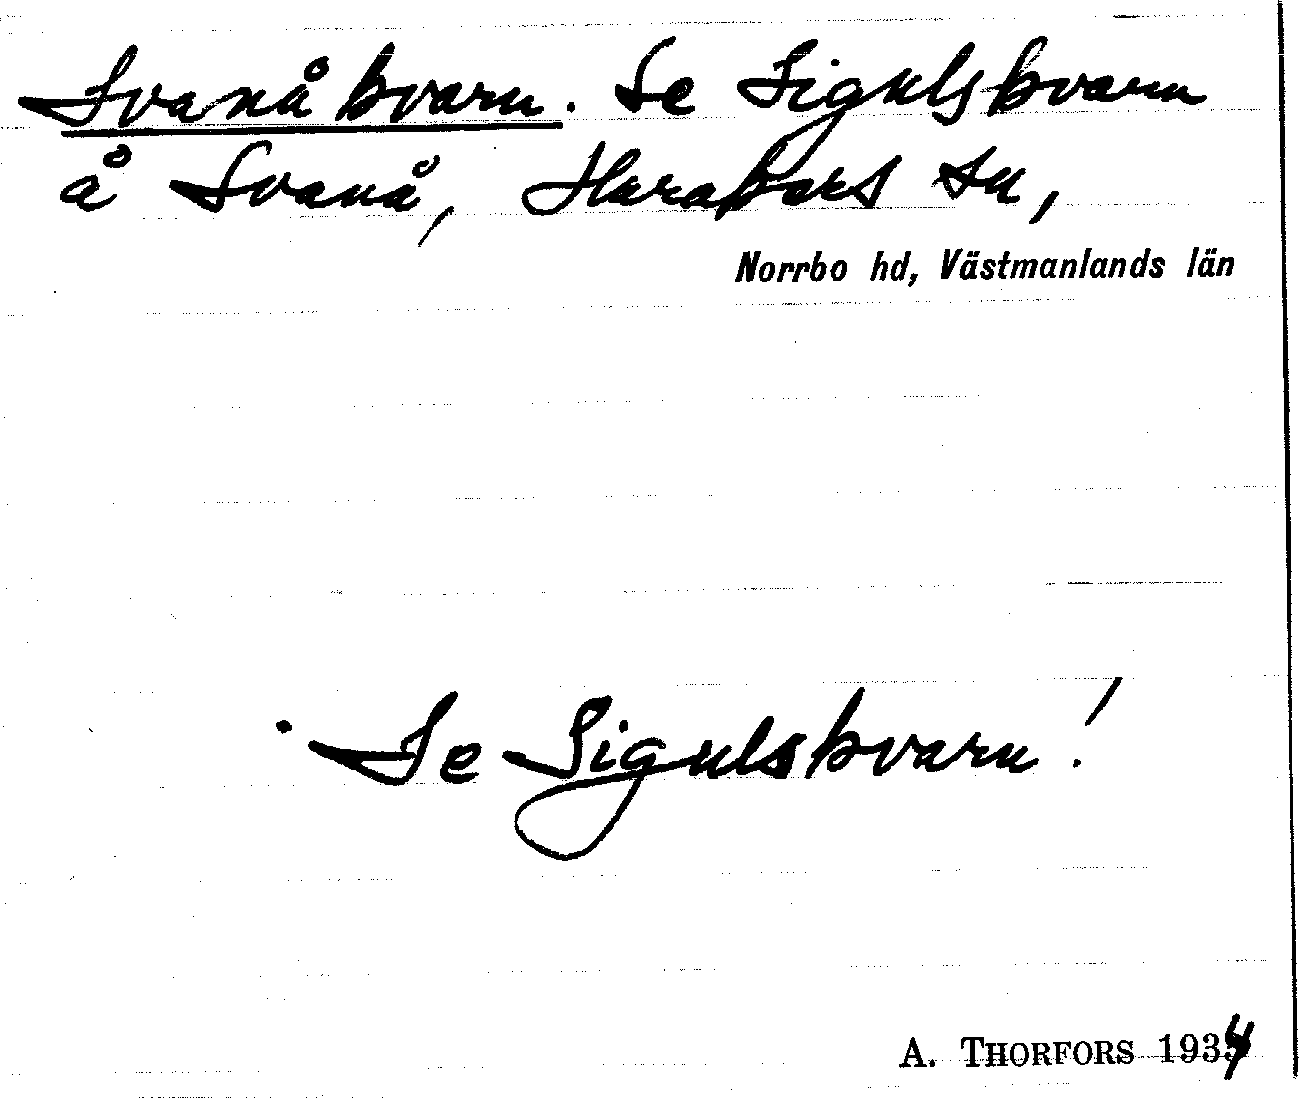 Svanå kvarn. Se Sigulskvarn
å Svanå, Harakers sn,
Norrbo hd, Västmanlands län
Se Sigulskvarn!
A. THORFORS 1934